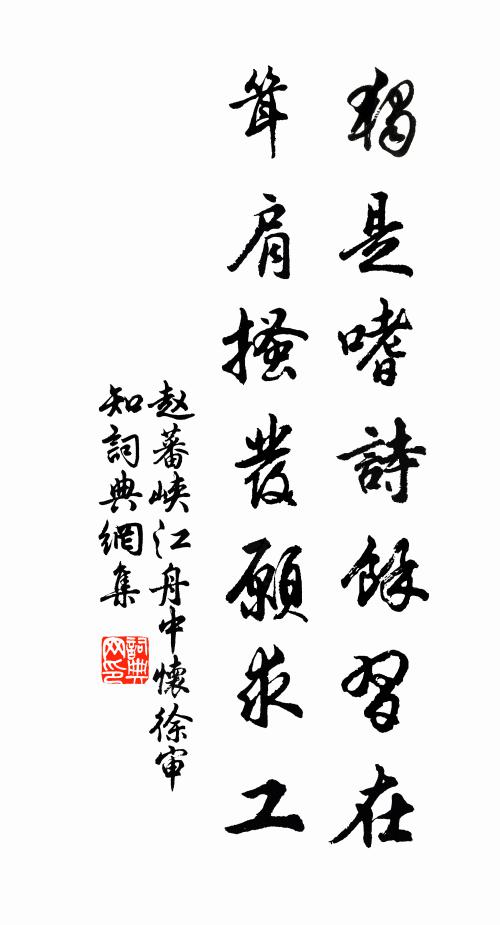 獨是嗜詩餘習在
聳肩搔發願求工
赵蕃峽江舟中懷徐审
知詞典網集
詞典网印